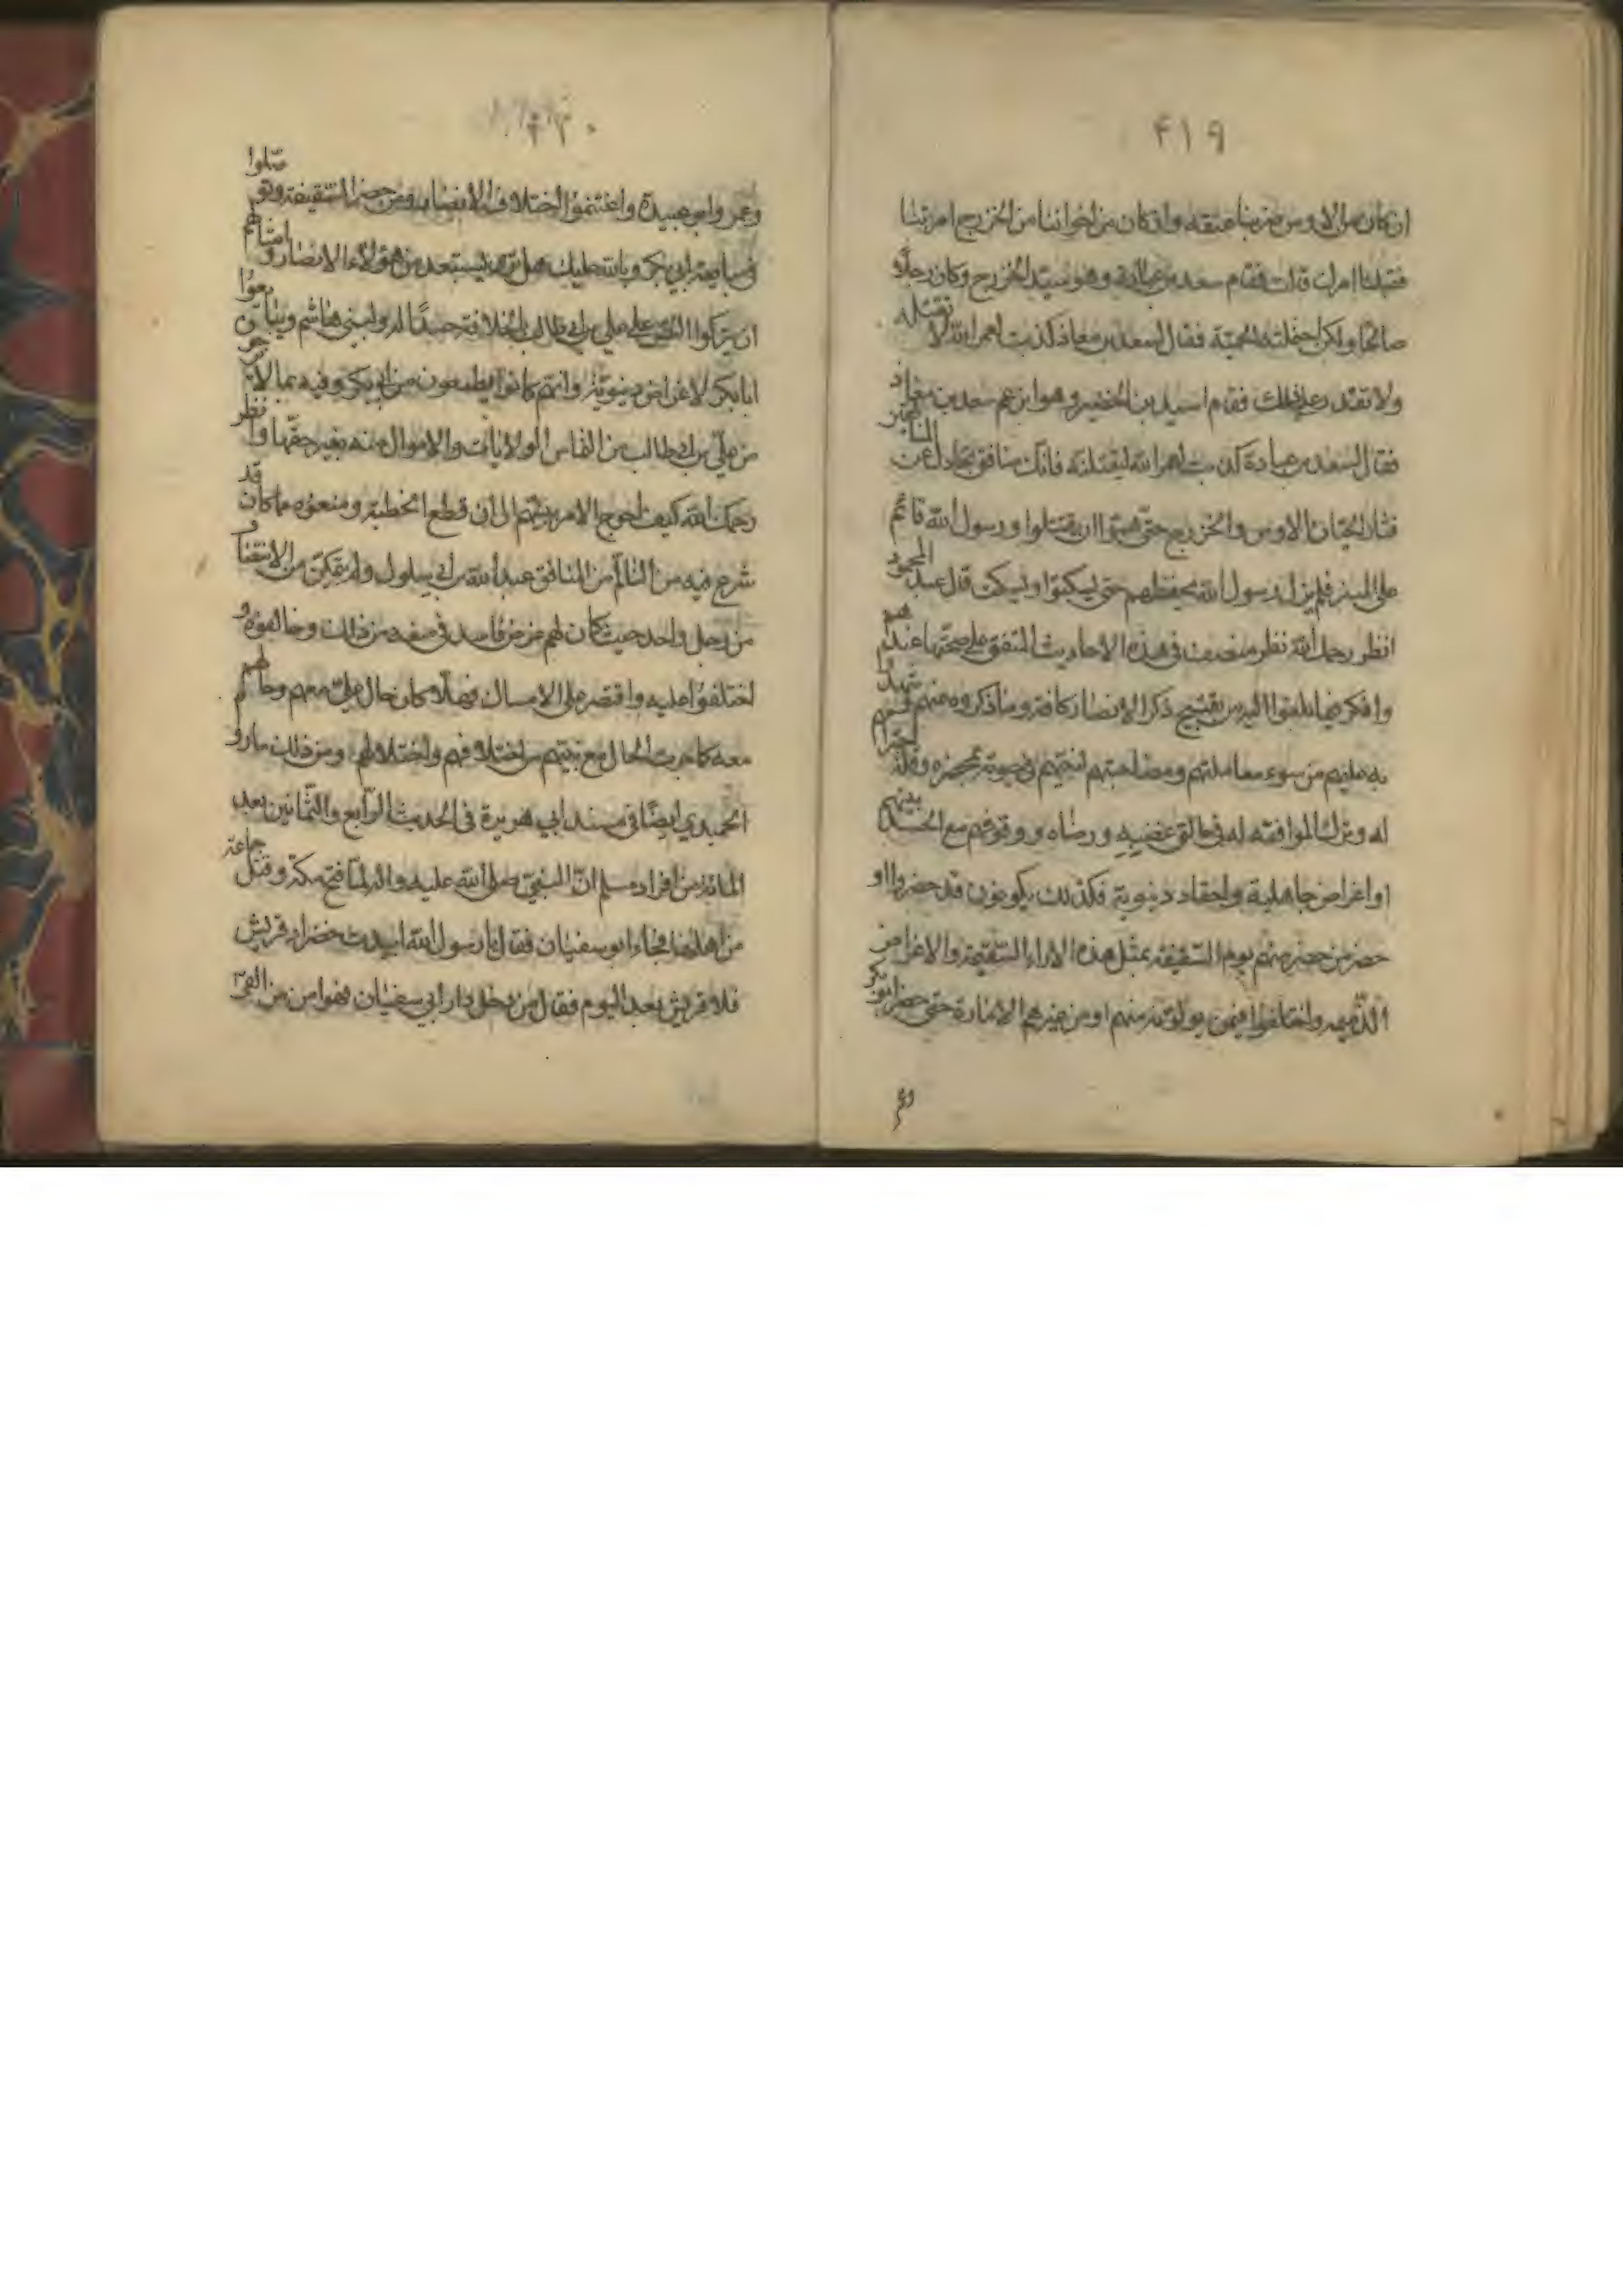 ٤١٩
ان كان من الاوس ضربنا عنقه وان كان من اخواننا من الخزرج امرتنا
ففعلنا امرك قالت فقام سعد بن عبادة وهو سيد الخزرج وكان رجلا
صالحا ولكن احتملته الحمية فقال لسعد بن معاذ كذبت لعمر الله لا تقتله
ولا تقدر على ذلك فقام اسيد بن الحضير وهو ابن عم سعد بن معاذ
فقال لسعد بن عبادة كذبت لعمر الله ليقتلنه فانك منافق تجادل عن
فثار الحيان الاوس والخزرج حتى هموا ان يقتتلوا ورسول الله قائم
على المنبر فلم يزل رسول الله يخفضهم حتى سكتوا وسكت قال عبد المحمود
انظر رحمك الله نظر منصف في هذه الاحاديث المتفق على صحتها عندهم
وافكر فيما بلغوا اليه من تقبيح ذكر الانصار كافة وما ذكروه عنهم
به عليهم من سوء معاملتهم ومصاحبتهم لنبيهم في حيوته بمحضره وقلة احترامهم
له وترك الموافقة له في حالتي غضبه ورضاه ووقوفهم مع الحسد بينهم
او اغراض جاهلية واحقاد دنيوية فكذلك يكونون قد حضروا او
حضر من حضر منهم يوم السقيفة بمثل هذه الاراء السقيمة والاغراض
الذميمة واختلفوا فيمن يولونه منهم او من غيرهم الامارة حتى حضر ابو بكر
وعمر
٤٢٠
وعمر وابو عبيدة واغتنموا اختلاف الانصار ومن حضر السقيفة وتوصلوا
في مبايعة ابي بكر وبالله عليك هل يستبعد من هؤلاء الانصار وامثالهم
ان يتركوا النص على علي بن ابي طالب بالخلافة حسدا له ولبني هاشم ويبايعوا
ابا بكر لاغراض دنيوية وانهم كانوا يطمعون من ابي بكر وفيه بما لا يرجو
من علي بن ابي طالب من التماس الولايات والاموال منه بغير حقها وانظر
رحمك الله كيف احوج الامر نبيهم الى ان قطع الخطبة ومنعوه ما كان قد
شرع فيه من التالم من المنافق عبد الله بن ابي سلول ولم يتمكن من الانتصاف
من رجل واحد حيث كان لهم غرض فاسد في منعه من ذلك وخالفوه و
اختلفوا عليه واقتصر على الامساك فهلا كان حال علي معهم وحالهم
معه كما جرت الحال مع نبيهم من اختلافهم واختلالهم ومن ذلك ما رواه
الحميدي ايضا في مسند ابي هريرة في الحديث الرابع والثمانين بعد
المائة من افراد مسلم ان النبي صلى الله عليه واله لما فتح مكة وقتل جماعة
من اهلها فجاء ابو سفيان فقال يا رسول الله ابيدت خضراء قريش
فلا قريش بعد اليوم فقال من دخل دار ابي سفيان فهو امن من القى